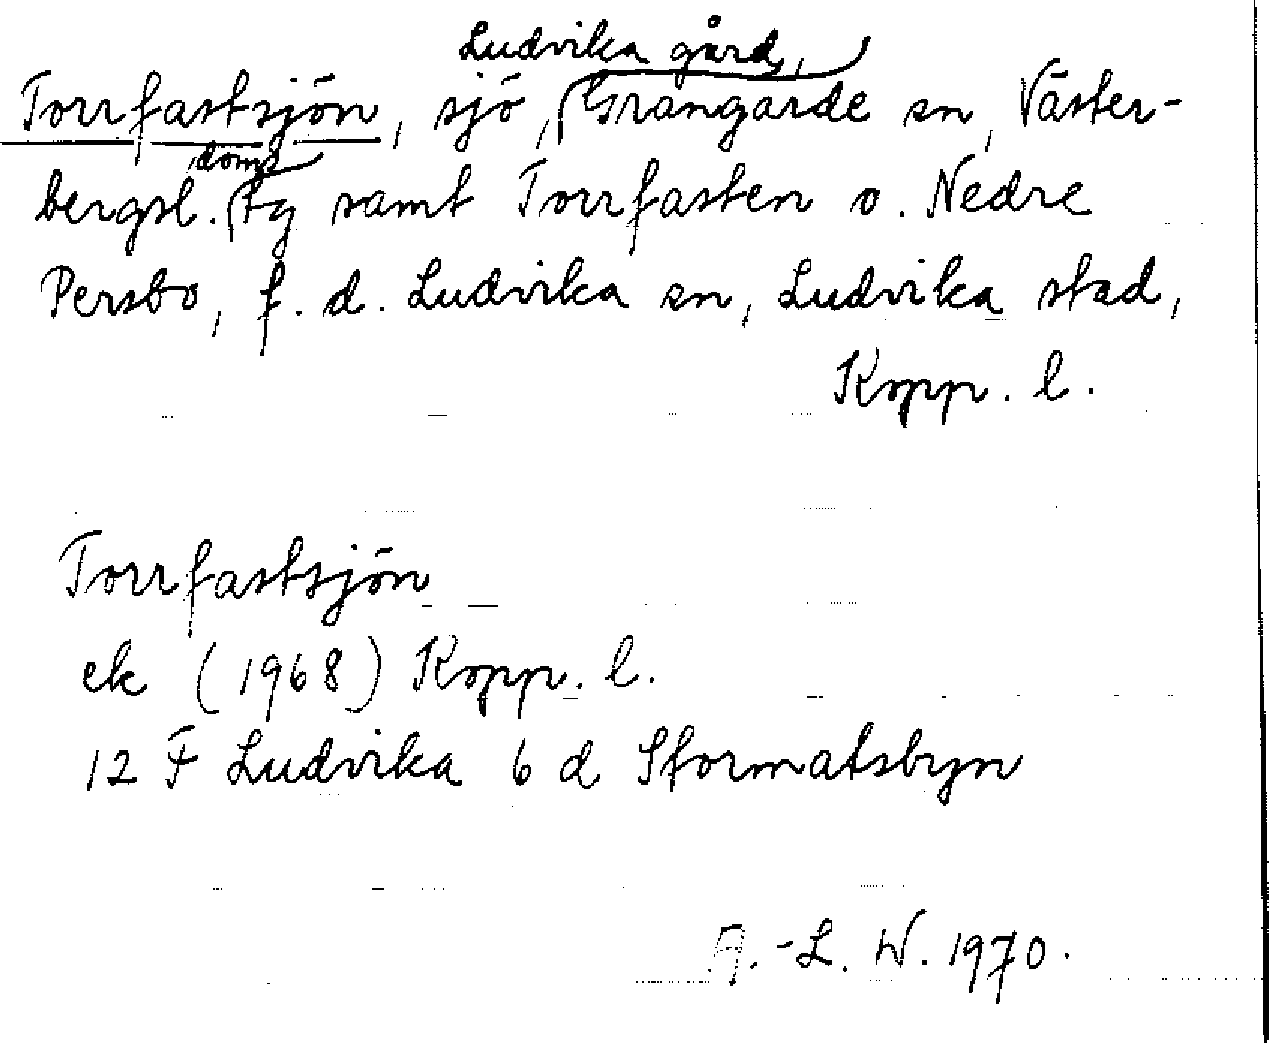 Ludvika gård,
Torrfastsjön, sjö, Grangärde sn, Väster-
doms
bergsl. tg samt Torrfasten o. Nedre
Persbo, f. d. Ludvika sn, Ludvika stad,
Kopp. l.
Torrfastsjön
ek (1968) Kopp. l.
12 F Ludvika 6 d Stormatsbyn
A.-L. W. 1970.